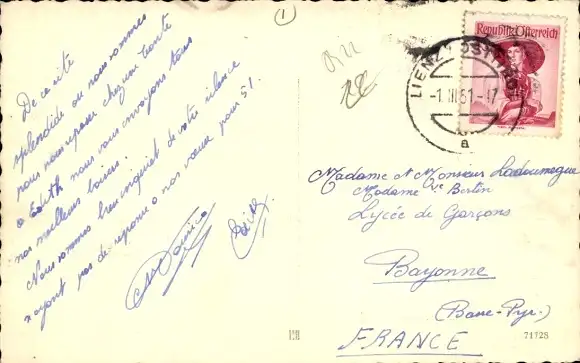 1
De ce site
splendide où nous sommes
nous nous reposer chez une tante
à Edith nous vous envoyons tous
nos meilleurs baisers.
Nous sommes bien inquiet de votre silence
n'ayant pas de reponse à nos vœux pour 51.
Maurice
Edith
Republik Österreich
LIENZ OSTTIROL
-1.III.51-17
a
Madame et Monsieur Ladoumegue
Madame Vve Bertin
Lycée de Garçons
Bayonne
(Basse-Pyr.)
FRANCE
128
71728